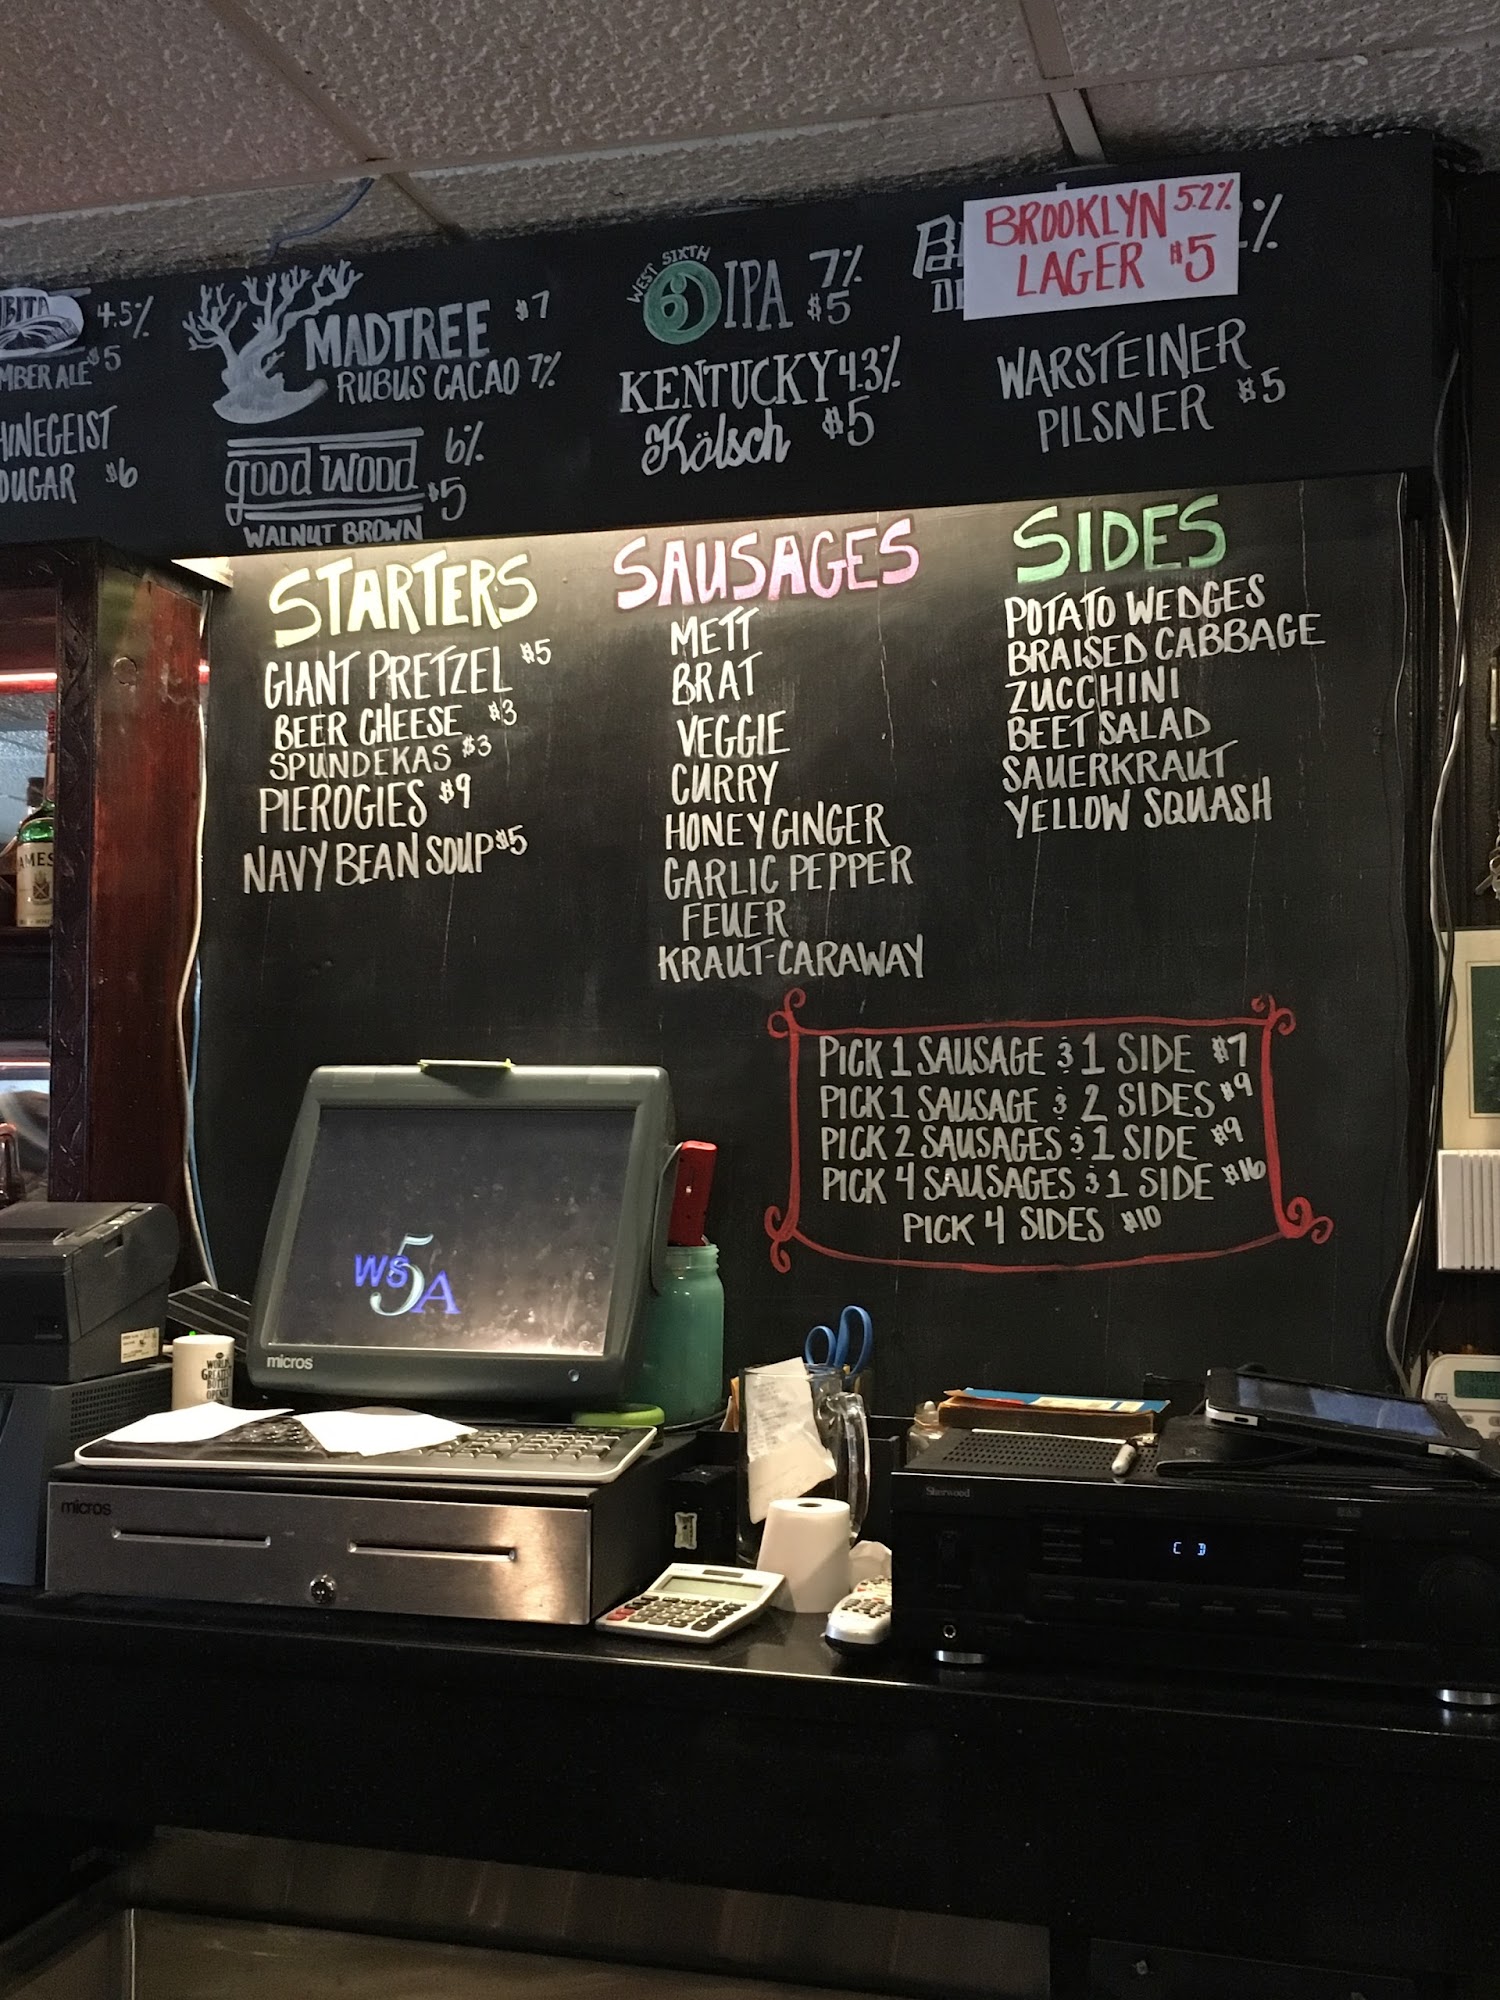 4.5%
$5
$6
MADTREE $7
RUBUS CACAO 7%
good wood 6%
$5
WALNUT BROWN
WEST SIXTH
6 IPA 7%
$5
KENTUCKY 4.3%
Kölsch $5
BROOKLYN 5.2%
LAGER $5
WARSTEINER
PILSNER $5
STARTERS
GIANT PRETZEL $5
BEER CHEESE $3
SPUNDEKAS $3
PIEROGIES $9
NAVY BEAN SOUP $5
SAUSAGES
METT
BRAT
VEGGIE
CURRY
HONEY GINGER
GARLIC PEPPER
FEUER
KRAUT-CARAWAY
SIDES
POTATO WEDGES
BRAISED CABBAGE
ZUCCHINI
BEET SALAD
SAUERKRAUT
YELLOW SQUASH
PICK 1 SAUSAGE & 1 SIDE $7
PICK 1 SAUSAGE & 2 SIDES $9
PICK 2 SAUSAGES & 1 SIDE $9
PICK 4 SAUSAGES & 1 SIDE $16
PICK 4 SIDES $10
WS5A
micros
WORLD'S
GREATEST
BOTTLE
OPENER
micros
Sherwood
CD